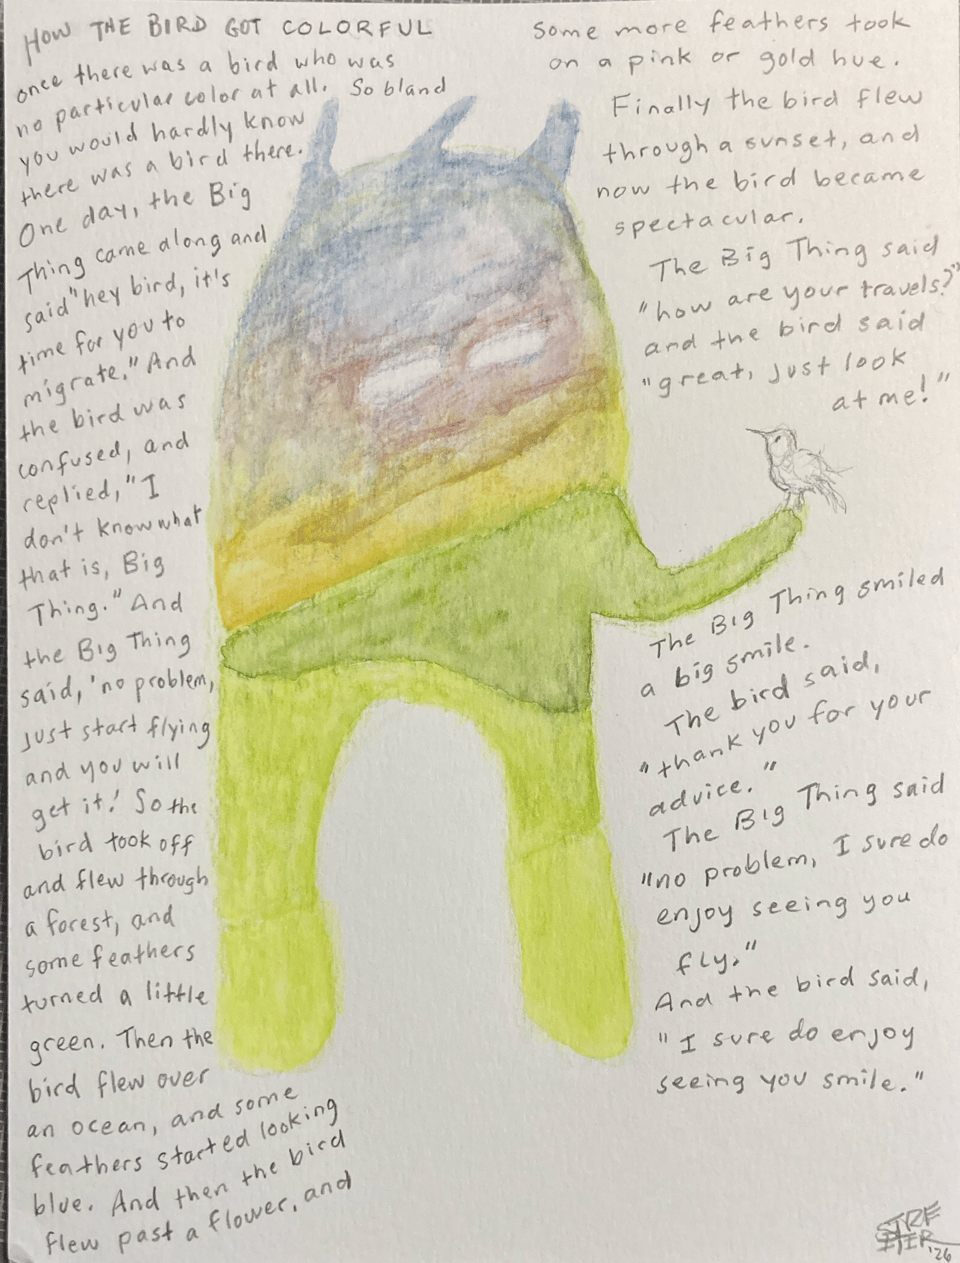 HOW THE BIRD GOT COLORFUL
once there was a bird who was
no particular color at all. So bland
you would hardly know
there was a bird there.
One day, the Big
Thing came along and
said "hey bird, it's
time for you to
migrate." And
the bird was
confused, and
replied, "I
don't know what
that is, Big
Thing." And
the Big Thing
said, 'no problem,
just start flying
and you will
get it!' So the
bird took off
and flew through
a forest, and
some feathers
turned a little
green. Then the
bird flew over
an ocean, and some
feathers started looking
blue. And then the bird
flew past a flower, and
Some more feathers took
on a pink or gold hue.
Finally the bird flew
through a sunset, and
now the bird became
spectacular.
The Big Thing said
"how are your travels?"
and the bird said
"great, just look
at me!"
The Big Thing smiled
a big smile.
The bird said,
"thank you for your
advice."
The Big Thing said
"no problem, I sure do
enjoy seeing you
fly."
And the bird said,
"I sure do enjoy
seeing you smile."
'26